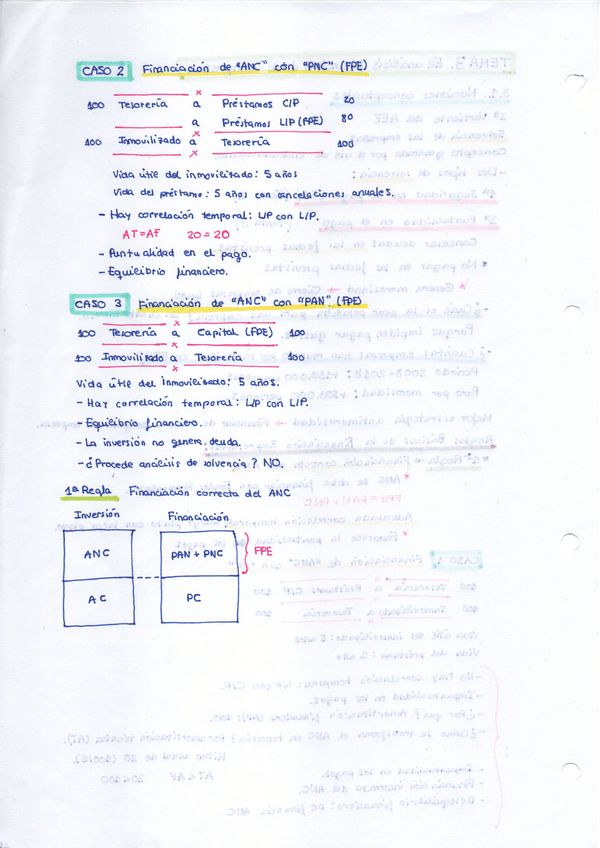 CASO 2 Financiación de "ANC" con "PNC" (FPE)
x
100 Tesorería a Préstamos C/P 20
a Préstamos L/P (FPE) 80
x
100 Inmovilizado a Tesorería 100
x
Vida útil del inmovilizado: 5 años
Vida del préstamo: 5 años con cancelaciones anuales.
- Hay correlación temporal: L/P con L/P.
AT=AF 20=20
- Puntualidad en el pago.
- Equilibrio financiero.
CASO 3 Financiación de "ANC" con "PAN" (FPE)
x
100 Tesorería a Capital (FPE) 100
x
100 Inmovilizado a Tesorería 100
x
Vida útil del inmovilizado: 5 años.
- Hay correlación temporal: L/P con L/P.
- Equilibrio financiero.
- La inversión no genera deuda.
- ¿Procede análisis de solvencia? NO.
1ª Regla Financiación correcta del ANC
Inversión Financiación
ANC PAN + PNC FPE
AC PC